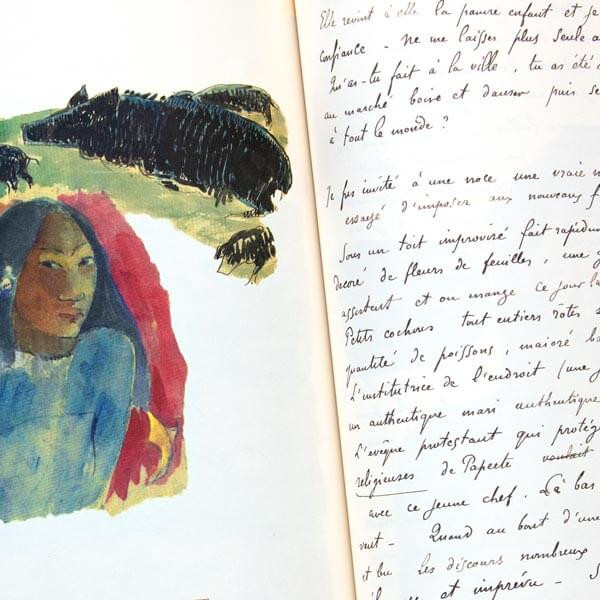 Elle revint à elle la pauvre enfant et je
confiance - ne me laisses plus seule a
Qu'as-tu fait à la ville, tu as été
au marché boire et danser puis se
à tout le monde ?
Je fus invité à une noce une vraie n
essayé d'imposer aux nouveaux f
Sous un toit improvisé fait rapidem
decoré de fleurs de feuilles, une g
assistent et on mange ce jour la
Petits cochons tout entiers rôtis s
quantité de poissons, maioré ba
L'institutrice de l'endroit (une j
un authentique mari authentique
L'evêque protestant qui protég
religieuses de Papeete voulait
avec ce jeune chef. Là bas
veut - Quand au bout d'une
et bu les discours nombreux
et imprévu - S